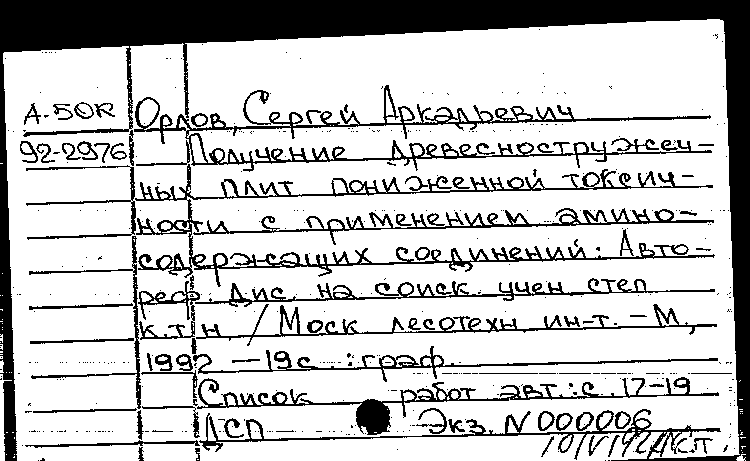 А-50R Орлов, Сергей Аркадьевич
92-2976 Получение древесностружеч-
ных плит пониженной токсич-
ности с применением амино-
содержащих соединений: Авто-
реф. Дис. на соиск. учен степ
к.т.н. / Моск лесотехн. ин-т. - М.,
1992 — 19с. : граф.
Список работ авт.: с. 17-19
ДСП Экз. N 000006